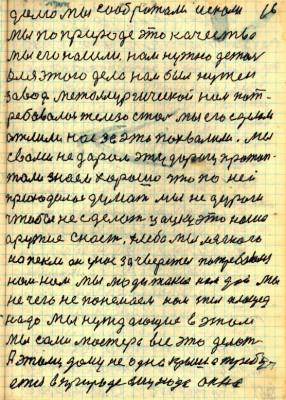 дело мы сооброжали искали 66
мы по природе это качество
мы его нашли. нам нужно детал
для этого дело нам был нужен
завод металлургический нам пот-
ребовалось железо стал мы его сделали
нас за это похвалили. мы
свами не даром эту дорогу протоп-
тали знаем хорошо что по ней
приходилос думат мы не дураки
чтобы не сделат это наше
аружие снаст, хлеба мы мягкого
напекли он у нас
нам нам мы люди такие нам дай мы
не чего не понимаем нам
надо мы нуждающие в этом
мы сами мастера все это делат
А этому дому не одна крыша требу-
ется в природе окно